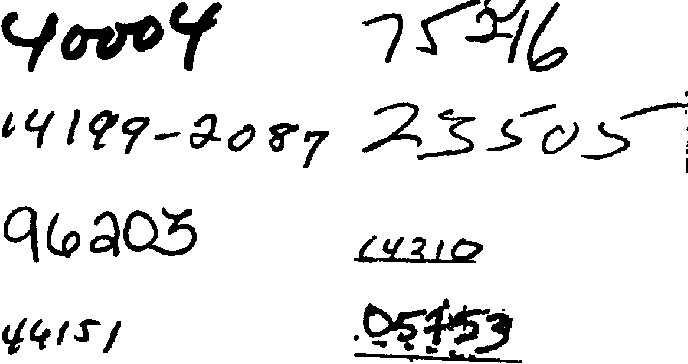 40004 75216
14199-2087 23505
96203 14310
44151 05753